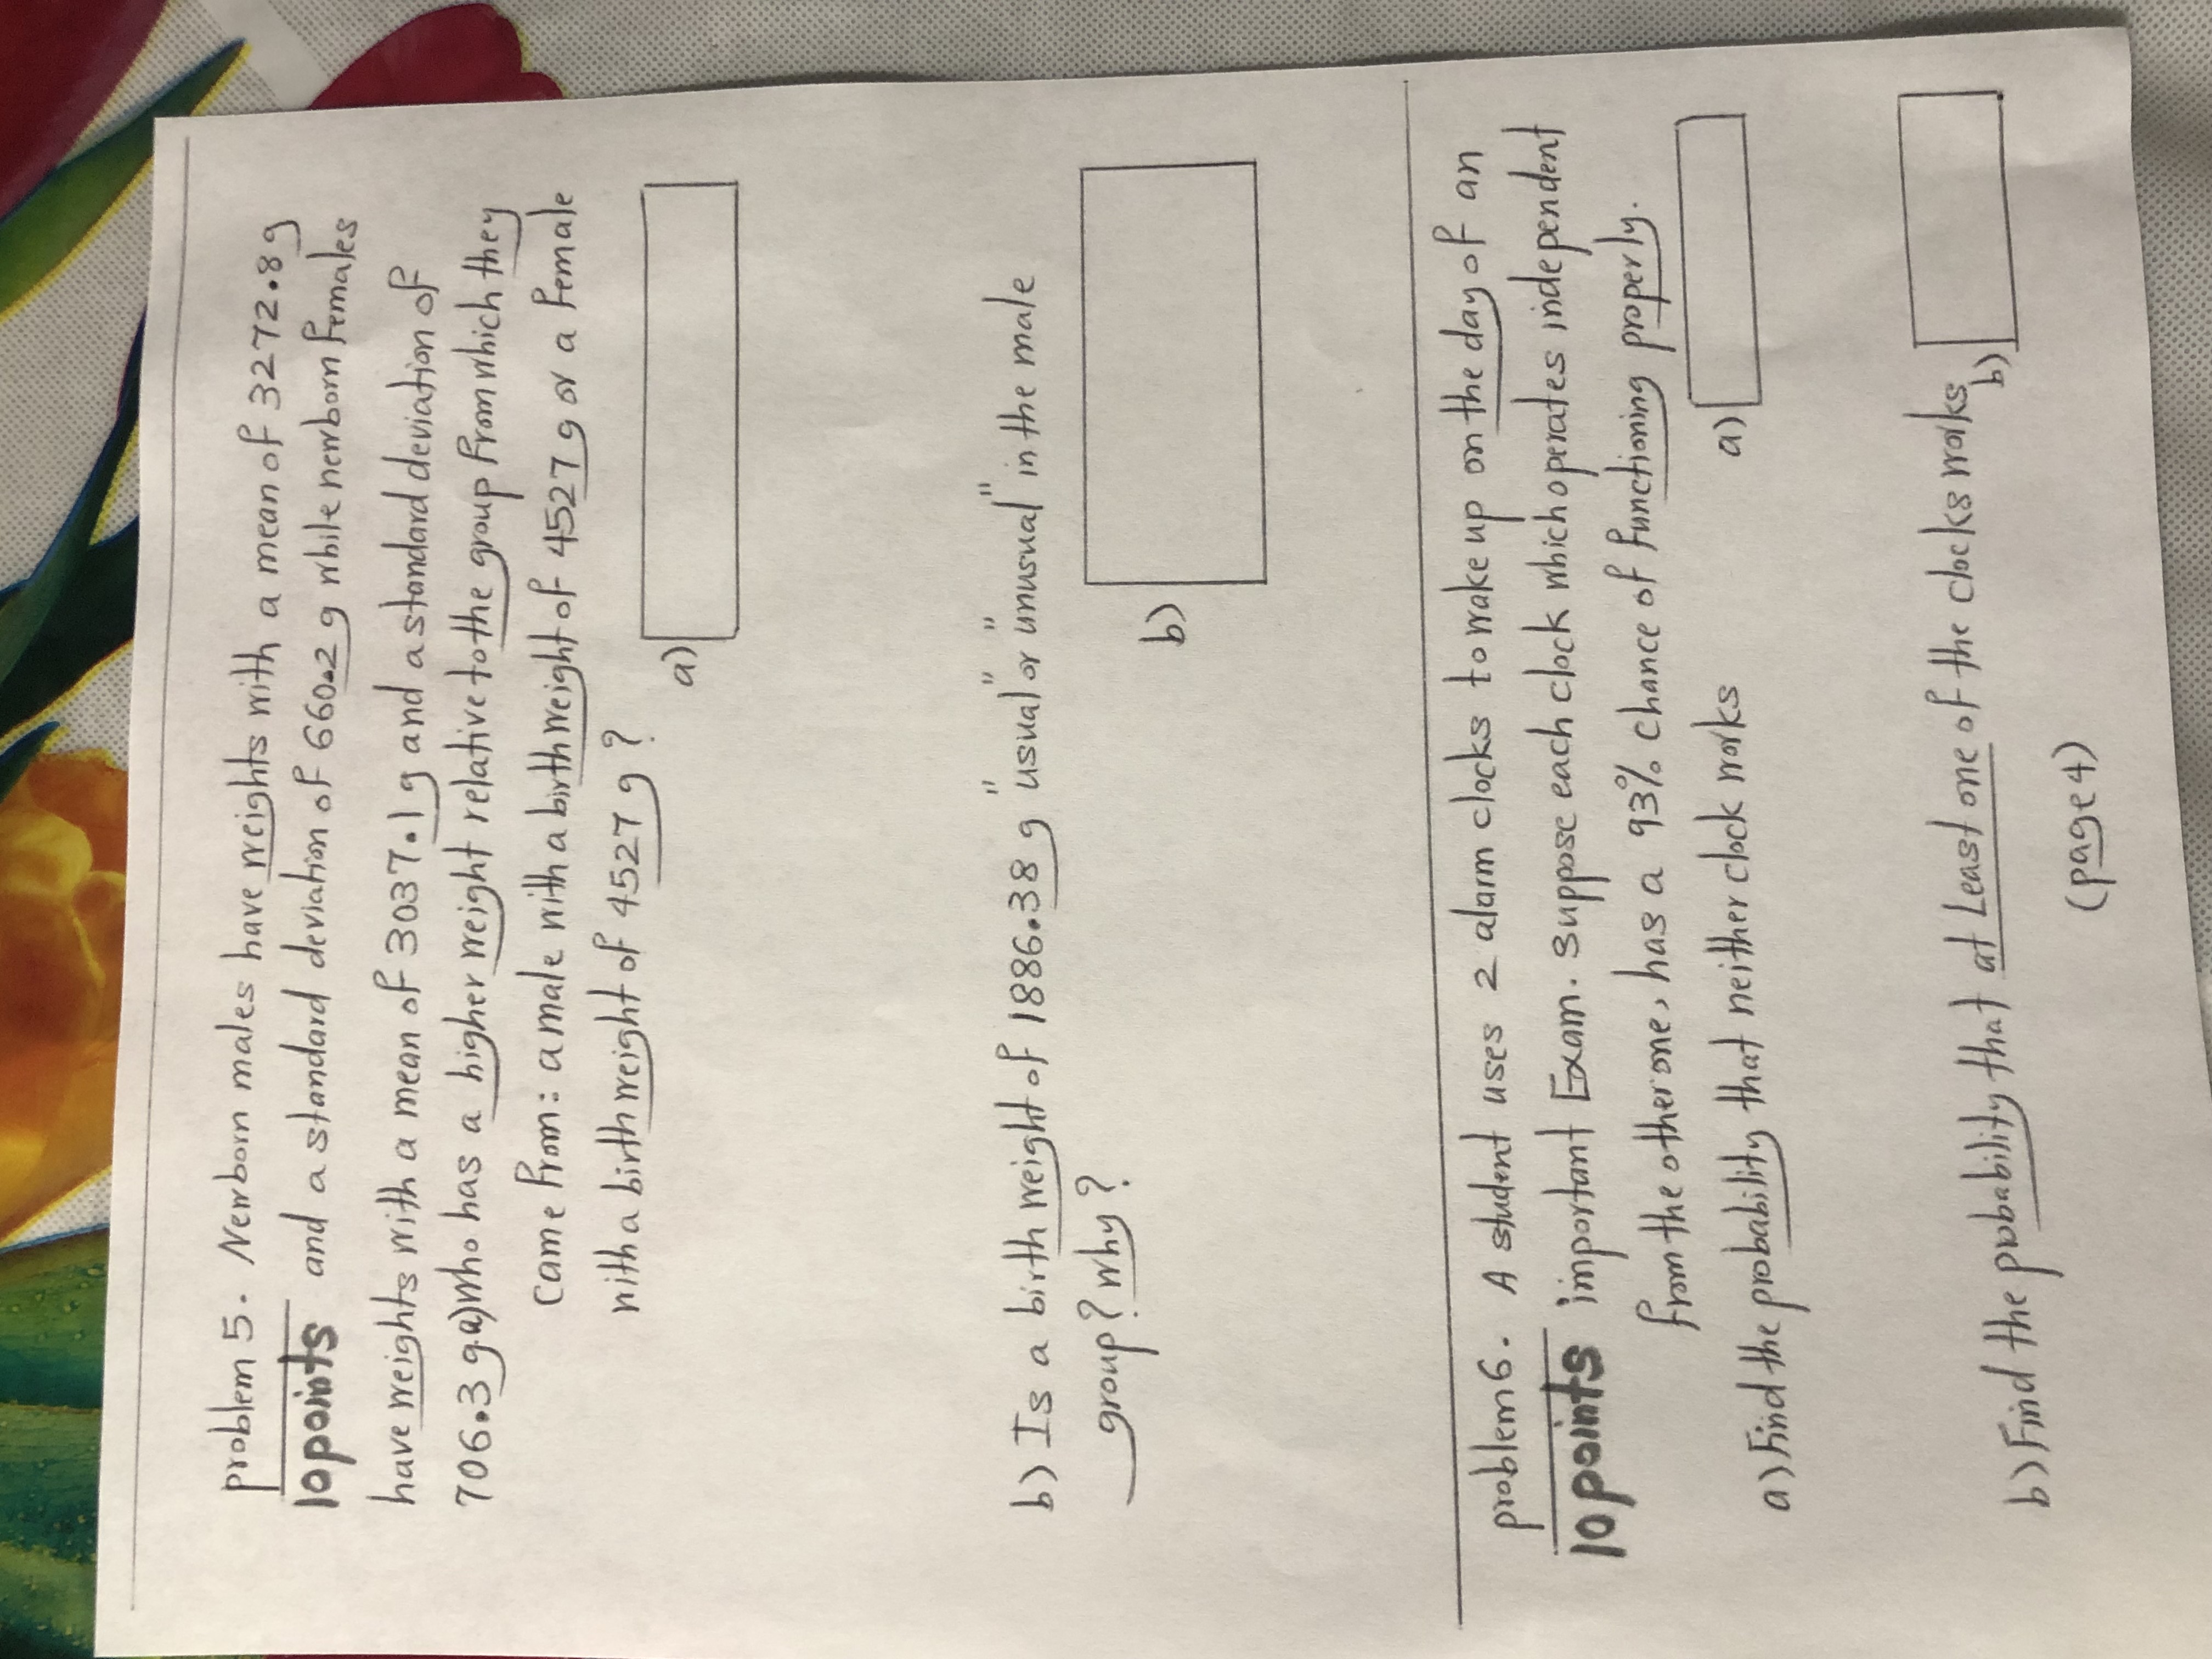 problem 5. Newborn males have weights with a mean of 3272.8 g
10 points and a standard deviation of 660.2 g while newborn females
have weights with a mean of 3037.1 g and a standard deviation of
706.3 g. a) who has a higher weight relative to the group from which they
came from: a male with a birth weight of 4527 g or a female
with a birth weight of 4527 g?
a)
b) Is a birth weight of 1886.38 g "usual" or "unusual" in the male
group? why?
b)
problem 6. A student uses 2 alarm clocks to wake up on the day of an
10 points important Exam. suppose each clock which operates independent
from the other one, has a 93% chance of functioning properly.
a) Find the probability that neither clock works
a)
b) Find the probability that at Least one of the clocks works
b)
(page 4)